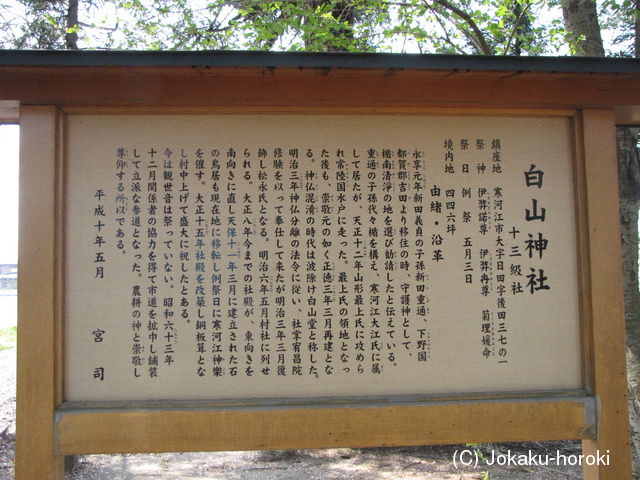 白山神社
十三級社
鎮座地　寒河江市大字日田字後田三七の一
祭神　伊弉諾尊　伊弉冉尊　菊理媛命
祭日　例祭　五月三日
境内地　四四六坪
由緒・沿革
永享元年新田義貞の子孫新田重通、下野国
都賀郡吉田より移住の時、守護神として、
楯南清浄の地を選び勧請したと伝えている。
重通の子孫代々楯を構え、寒河江大江氏に属
して居たが、天正十二年山形最上氏に攻めら
れ常陸国水戸に走った。最上氏の領地となっ
た後も、崇敬元の如く正徳三年三月再建とな
る。神仏混淆の時代は波除け白山堂と称した。
明治三年神仏分離の法令に従い、社掌宥昌院
修験を以って奉仕して来たが明治三年三月復
飾し松永氏となる。明治六年五月村社に列せ
られる。大正八年今までの社殿が、東向きを
南向きに直し天保十一年三月に建立された石
の鳥居も現在地に移転し例祭日に寒河江神樂
を催す。大正十五年社殿を改築し銅板葺とな
し村中上げて盛大に祝したとある。
今は観世音は祭っていない。昭和六十三年
十二月関係者の協力を得て市道を拡巾し舗装
して立派な参道となった。農耕の神と崇敬し
尊仰する所以である。
平成十年五月　宮司
(C) Jokaku-horoki